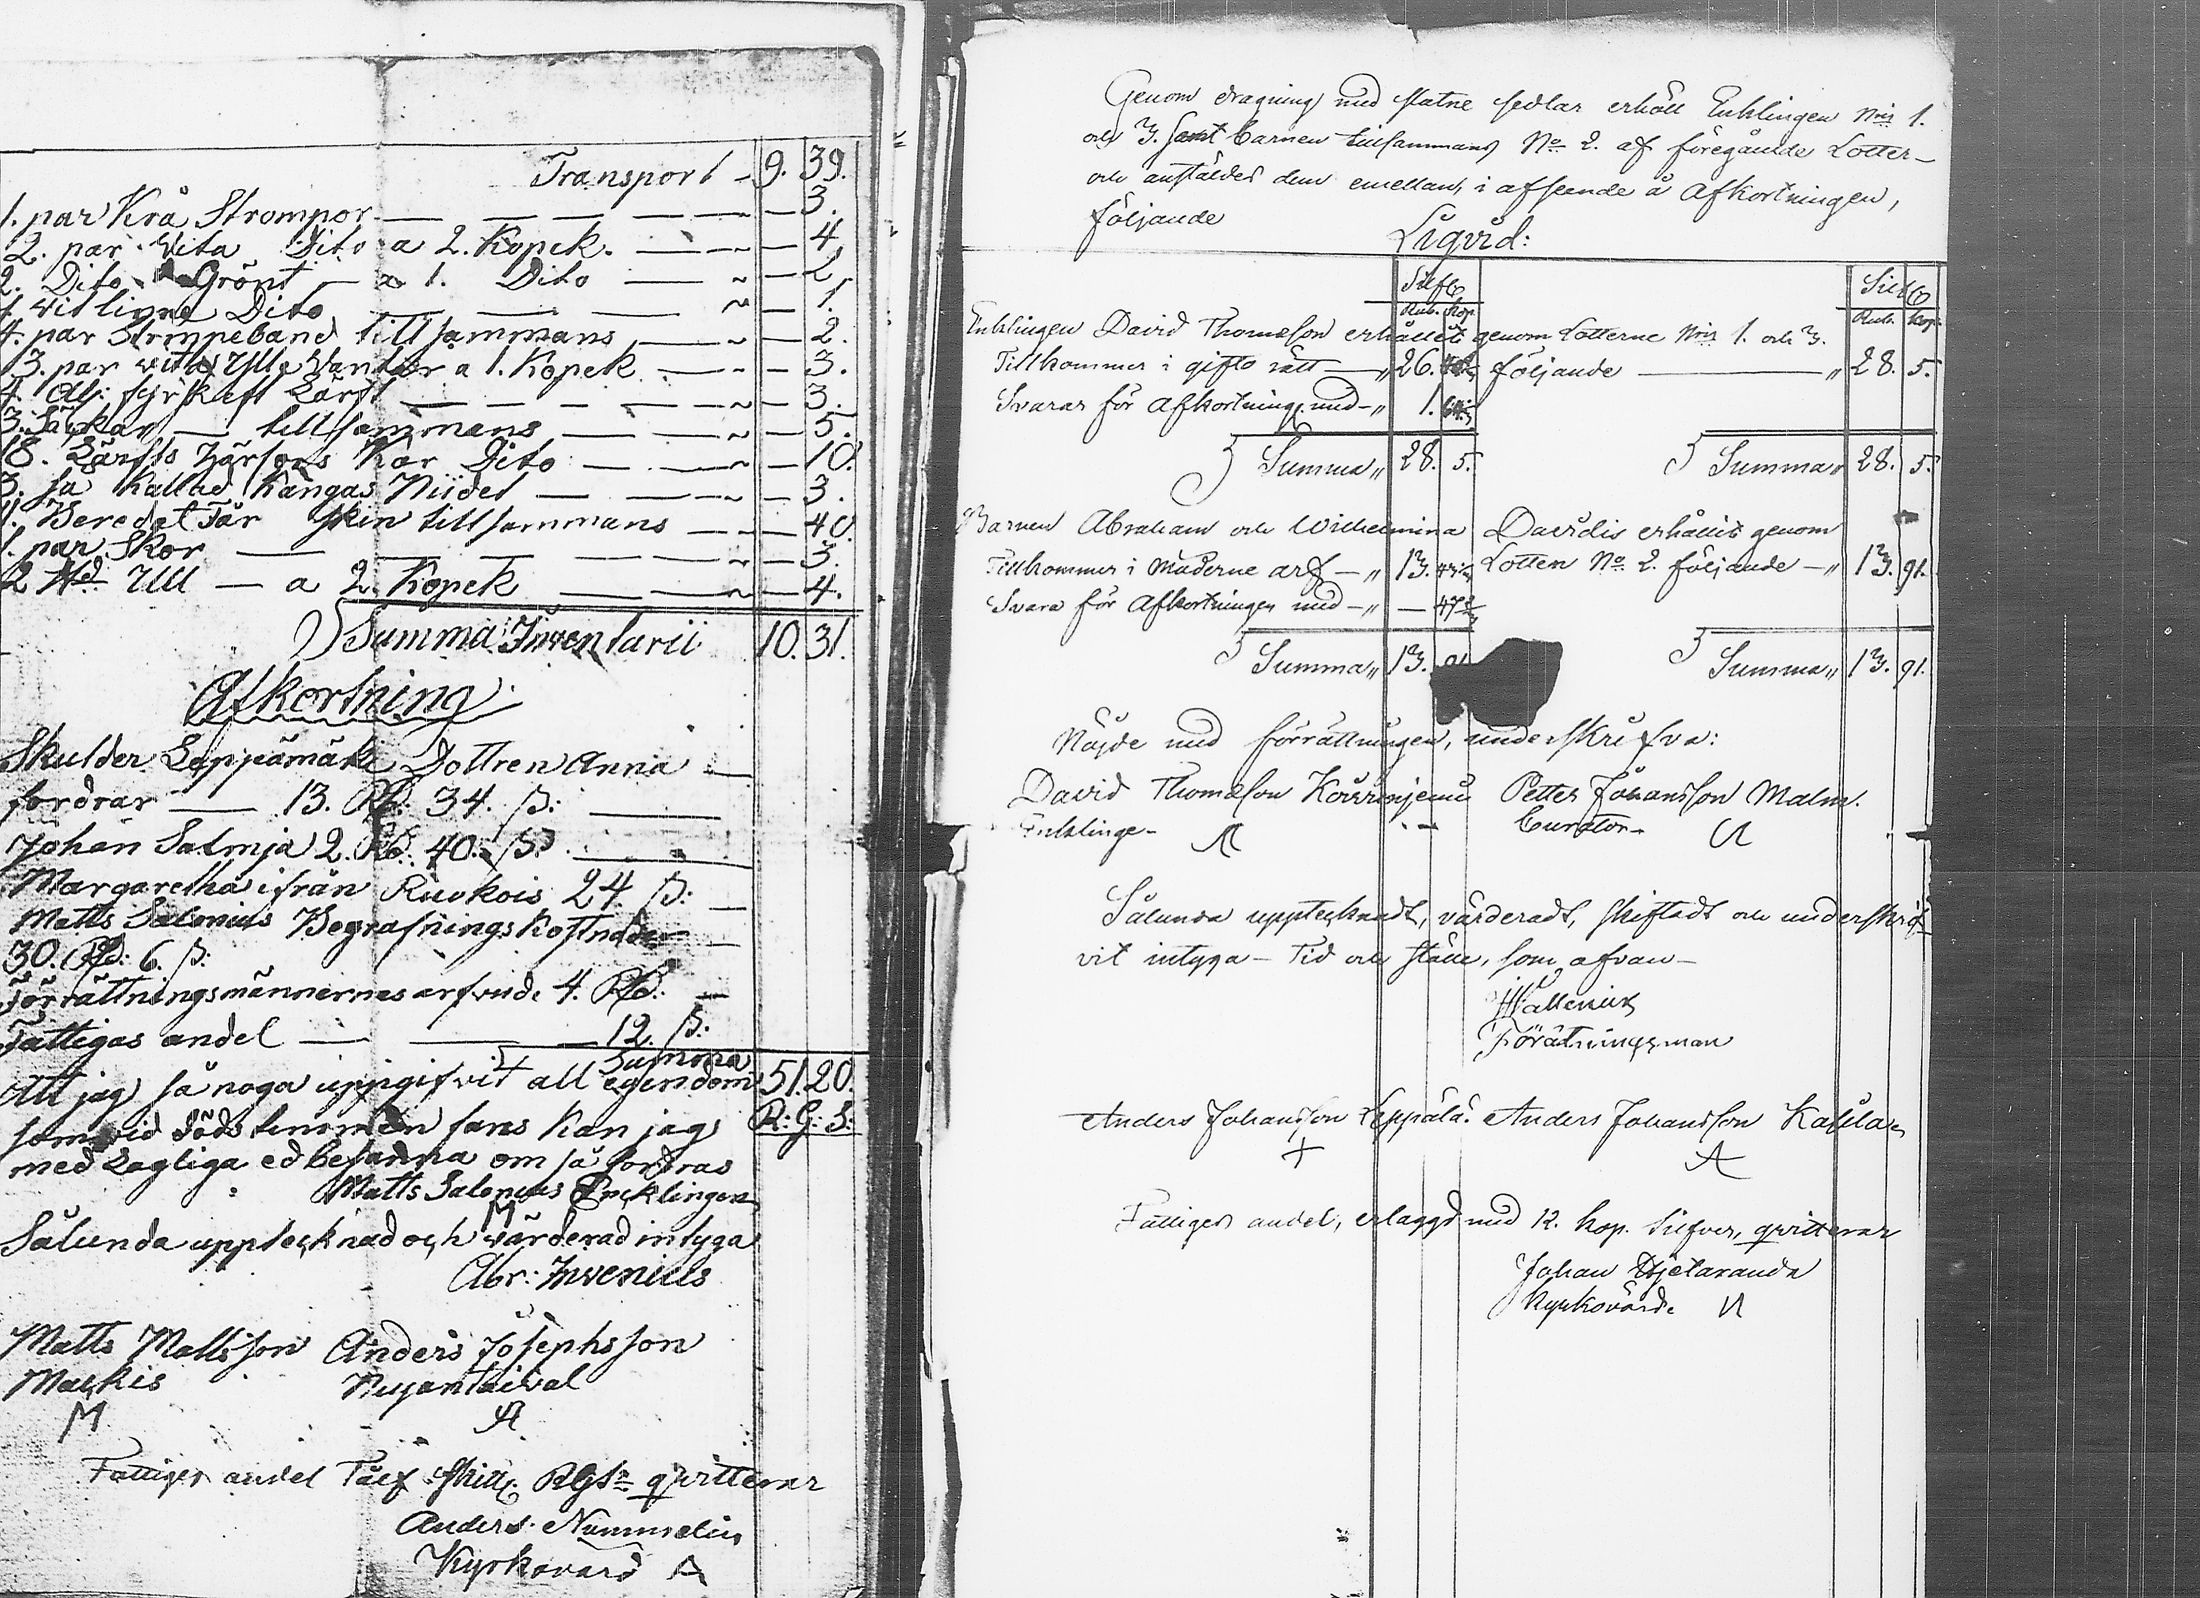 Transport - 9. 39.
1. par Krå Strompor — — — — — 3.
2. par Vita Dito a 2. Kopek. — — — 4.
2. Dito Grönt — a 1. Dito — — — 2.
1. vit linne Dito — — — — 1.
4. par Strmpeband tillsammans — — — 2.
3. par vita Ulle Vantar a 1. Kopek — — — 3.
4. Alj: fyrskeft Lärft — — — — 3.
3. Säckar — tillsammans — — — 5.
18. Dito — — — 10.
3. så kallad Kangas Niidet — — — 3.
1. Beredet Får skin tillsammans — — 40.
1. par Skor — — — — — 3.
2 ℔d Ull — a 2. Kopek — — — 4.
Summa Inventarii 10. 31.
Afkortning
Skulder Leppämäki Dottren Anna —
fordrar — 13. Rd: 34. ß: —
Johan Salmja 2. Rd: 40. ß: —
Margaretha ifrån Ruokois 24. ß: —
Matts Salonius Begrafnings Kostnader —
30. Rd: 6. ß:
Förrättningsmännernes arfvode 4. Rd: —
Fattigas andel — — 12. ß:
Summa
Att jag så noga uppgifvit all egendom 51. 20.
som vid dödstimmen fans kan jag R: G: S:
med Lagliga ed besanna om så fordras
Matts Salonius Encklingen
M
Sålunda upptecknad och värderad intyga
Abr: Invenius
Matts Mattsson Anders Josephsson
Mackis Nujantaival
M A
Fattiges andel Tolf skill. RGS qvitterar
Anders Nummelin
Kyrkovärd A
Genom dragning med slatne sedlar erhöll Enklingen Nris 1.
och 3. samt barnen tillsammans No 2. af föregående Lotter —
och anstäldes dem emellan, i afseende å Afkortningen,
följande
Liqvid:
Silf. Silf.
Rub. Kop. Rub. Kop.
Enklingen David Thomasson erhållit genom Lotterne Nris 1. och 3.
Tillkommer i gifto rätt — „ 26. följande — „ 28. 5.
Svarar för Afkortning. med — „ 1.
Summa „ 28. 5. Summa „ 28. 5.
Barnen Abraham och Wilhelmina Davidis erhållit genom
Tillkommer i Möderne arf — „ 13. Lotten No 2. följande — „ 13. 91.
Svara för Afkortningen med — „ — 47
Summa „ 13. 91 Summa „ 13. 91.
Nöjde med förrättningen, underskrifva:
David Thomasson Petter Johansson Malm.
Enklinge - Curator -
Sålunda upptecknadt, värderadt, skiftadt och underskrif-
vit intyga — Tid och ställe, som ofvan —
Wallenius
Förrätningsman
Anders Johansson Leppälä. Anders Johansson
+ A
Fattiges andel, erlaggd med 12. kop. Silfver, qvitterar
Johan Hjetaranda
Kyrkovärde